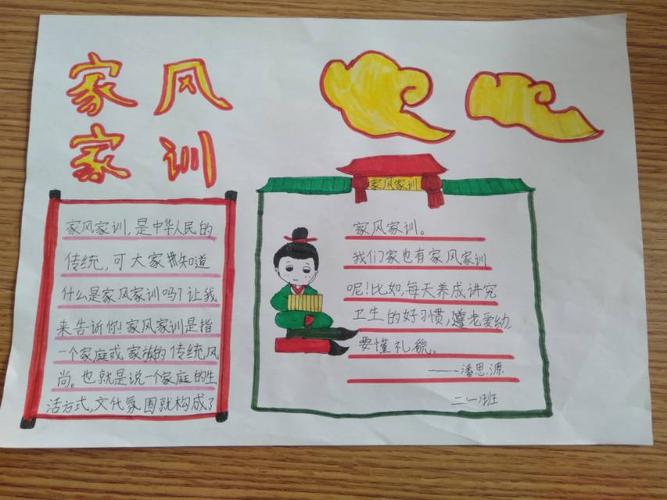 家风
家训
家风家训，是中华人民的
传统，可大家都知道
什么是家风家训吗？让我
来告诉你！家风家训是指
一个家庭或家族的传统风
尚。也就是说一个家庭的生
活方式，文化氛围就构成了
家风家训
家风家训。
我们家也有家风家训
呢！比如，每天养成讲究
卫生的好习惯，尊老爱幼
要懂礼貌。
——潘思源
二一班